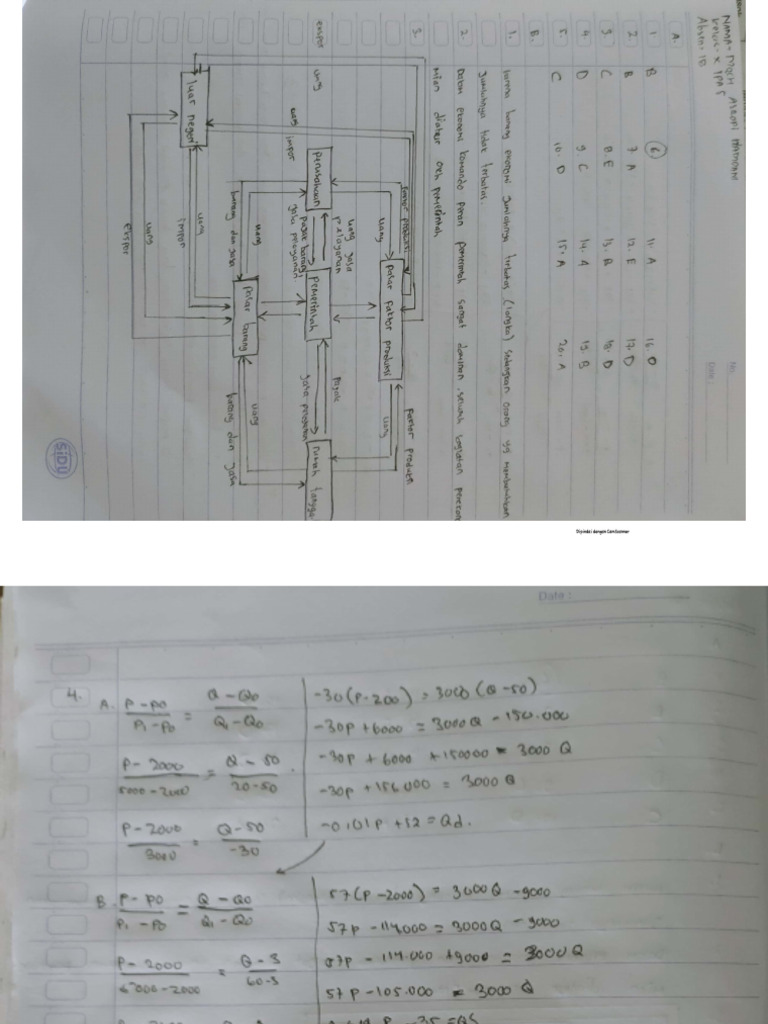 No.
Date :
Kelas = X IPA 5
Absen = 18
A.
1. B 6 11. A 16. D
2. B 7. A 12. E 17. D
3. C 8. E 13. B 18. D
4. D 9. C 14. A 19. B
5. C 10. D 15. A 20. A
B.
1. karena barang ekonomi jumlahnya terbatas (langka) sedangkan orang yg membutuhkan
jumlahnya tidak terbatas.
2. Dalam ekonomi komando peran pemerintah sangat dominan. seluruh kegiatan perekono
mian diatur oleh pemerintah
3.
Faktor produksi
Faktor produksi
pasar faktor produksi
uang
uang
uang jasa
pelayanan
pajak
perusahaan
pemerintah
rumah tangga
pajak barang
jasa pelayanan
jasa pelayanan
ekspor
uang
uang
impor
uang
barang dan jasa
pasar barang
uang
barang dan jasa
luar negeri
uang
impor
uang
ekspor
SiDU
Dipindai dengan CamScanner
Date :
4. A. P - P0 / P1 - P0 = Q - Q0 / Q1 - Q0
P - 2000 / 5000 - 2000 = Q - 50 / 20 - 50
P - 2000 / 3000 = Q - 50 / -30
-30 (P - 200) = 3000 (Q - 50)
-30P + 6000 = 3000Q - 150.000
-30P + 6000 + 150000 = 3000 Q
-30P + 156000 = 3000 Q
-0,01P + 52 = Qd.
B. P - P0 / P1 - P0 = Q - Q0 / Q1 - Q0
P - 2000 / 5000 - 2000 = Q - 3 / 60 - 3
57 (P - 2000) = 3000Q - 9000
57P - 114.000 = 3000Q - 9000
57P - 114.000 + 9000 = 3000 Q
57P - 105.000 = 3000 Q